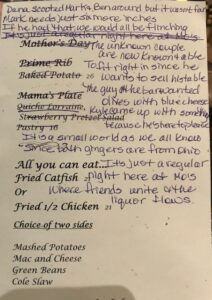 Dana scooted Mark's Barnaround but it wasn't far
Mark needs just six more inches
If he had that we would all be flinching
It's just a regular night here at Mois
Mother's Day
The unknown couple
are now known table
Prime Rib
To fit right in since he
Baked Potato 26
wants to sell his table
Mama's Plate
the guy at the bar wanted
olives with blue cheese
Quiche Lorraine
Kyle came up with something
Strawberry Pretzel Salad
because he's here to please
Pastry 18
It's a small world as we all know
Since both gingers are from Ohio
All you can eat...
It's just a regular
Fried Catfish 21
night here at Mois
Or
Where friends unite & the
liquor flows.
Fried 1/2 Chicken 21
Choice of two sides
Mashed Potatoes
Mac and Cheese
Green Beans
Cole Slaw